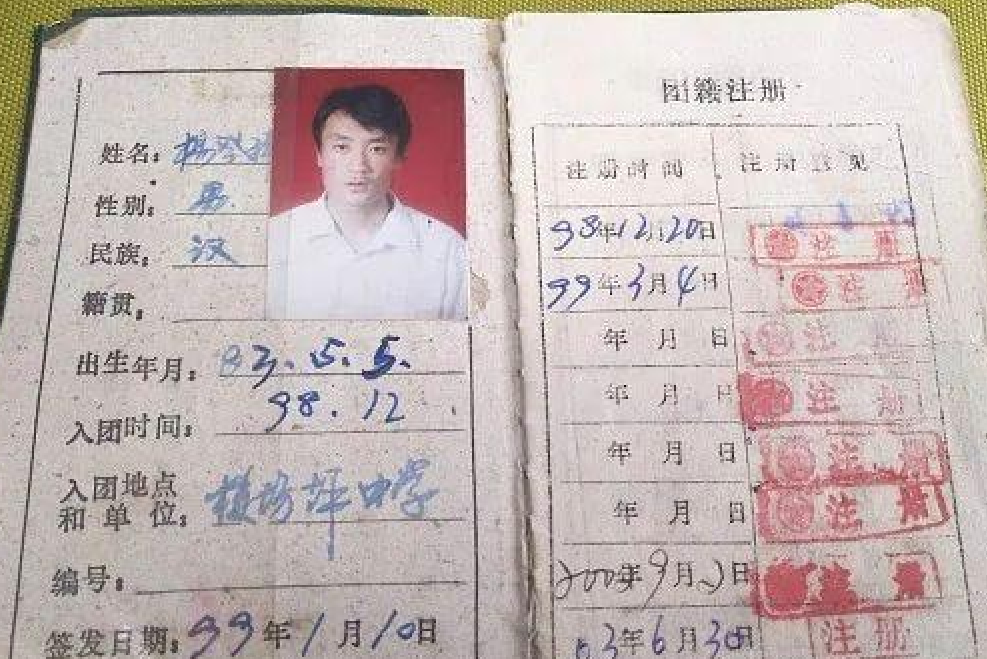 姓名：杨
性别：男
民族：汉
籍贯：
出生年月：83.5.5.
入团时间：98.12
入团地点
和单位：杨坪中学
编号：
签发日期：99年1月10日
团籍注册
注册时间 注册意见
98年12月20日 注册
99年3月4日 注册
年 月 日 注册
年 月 日 注册
年 月 日 注册
年 月 日 注册
年9月2日 注册
03年6月30日 注册